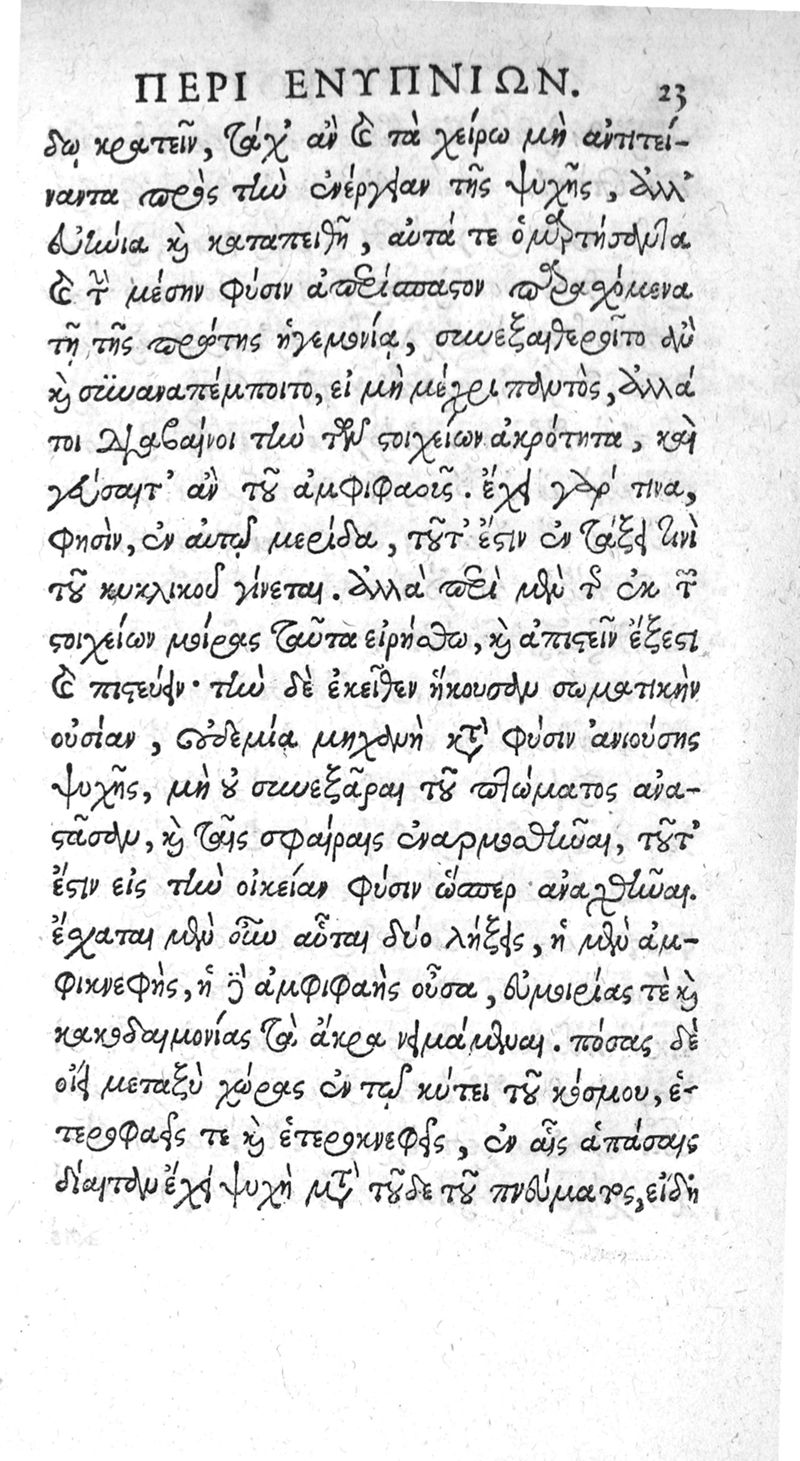 ΠΕΡΙ ΕΝΥΠΝΙΩΝ. 23
δῳ κρατεῖν, τάχ' ἂν καὶ τὰ χείρω μὴ ἀντιτεί-
ναντα πρὸς τὴν ἐνέργειαν τῆς ψυχῆς, ἀλλ'
εὐήνια καὶ καταπειθῆ, αὐτά τε ὁμαρτήσαντα
καὶ τὴν μέσην φύσιν ἀπερίσπαστον παραδεχόμενα
τῇ τῆς πρώτης ἡγεμονίᾳ, συνεξαιθεροῖτο ἂν
καὶ συναναπέμποιτο, εἰ μὴ μέχρι παντὸς, ἀλλά
τοι διαβαίνοι τὴν τῶν στοιχείων ἀκρότητα, καὶ
γεύσαιτ' ἂν τοῦ ἀμφιφαοῦς. ἔχει γάρ τινα,
φησὶν, ἐν αὐτῷ μερίδα, τοῦτ' ἔστιν ἐν τάξει τινὶ
τοῦ κυκλικοῦ γίνεται. ἀλλὰ περὶ μὲν τῆς ἐκ τῶν
στοιχείων μοίρας ταῦτα εἰρήσθω, καὶ ἀπιστεῖν ἔξεστι
καὶ πιστεύειν· τὴν δὲ ἐκεῖθεν ἥκουσαν σωματικὴν
οὐσίαν, οὐδεμία μηχανὴ κατὰ φύσιν ἀνιούσης
ψυχῆς, μὴ οὐ συνεξᾶραι τοῦ πτώματος ἀνα-
στᾶσαν, καὶ ταῖς σφαίραις ἐναρμοσθῆναι, τοῦτ'
ἔστιν εἰς τὴν οἰκείαν φύσιν ὥσπερ ἀναχθῆναι.
ἔσχαται μὲν οὖν αὗται δύο λήξεις, ἡ μὲν ἀμ-
φικνεφὴς, ἡ δὲ ἀμφιφαὴς οὖσα, εὐμοιρίας τὲ καὶ
κακοδαιμονίας τὰ ἄκρα νειμάμεναι. πόσας δὲ
οἴει μεταξὺ χώρας ἐν τῷ κύτει τοῦ κόσμου, ἑ-
τεροφαεῖς τε καὶ ἑτεροκνεφεῖς, ἐν αἷς ἁπάσαις
δίαιταν ἔχει ψυχὴ μετὰ τοῦδε τοῦ πνεύματος, εἴδη